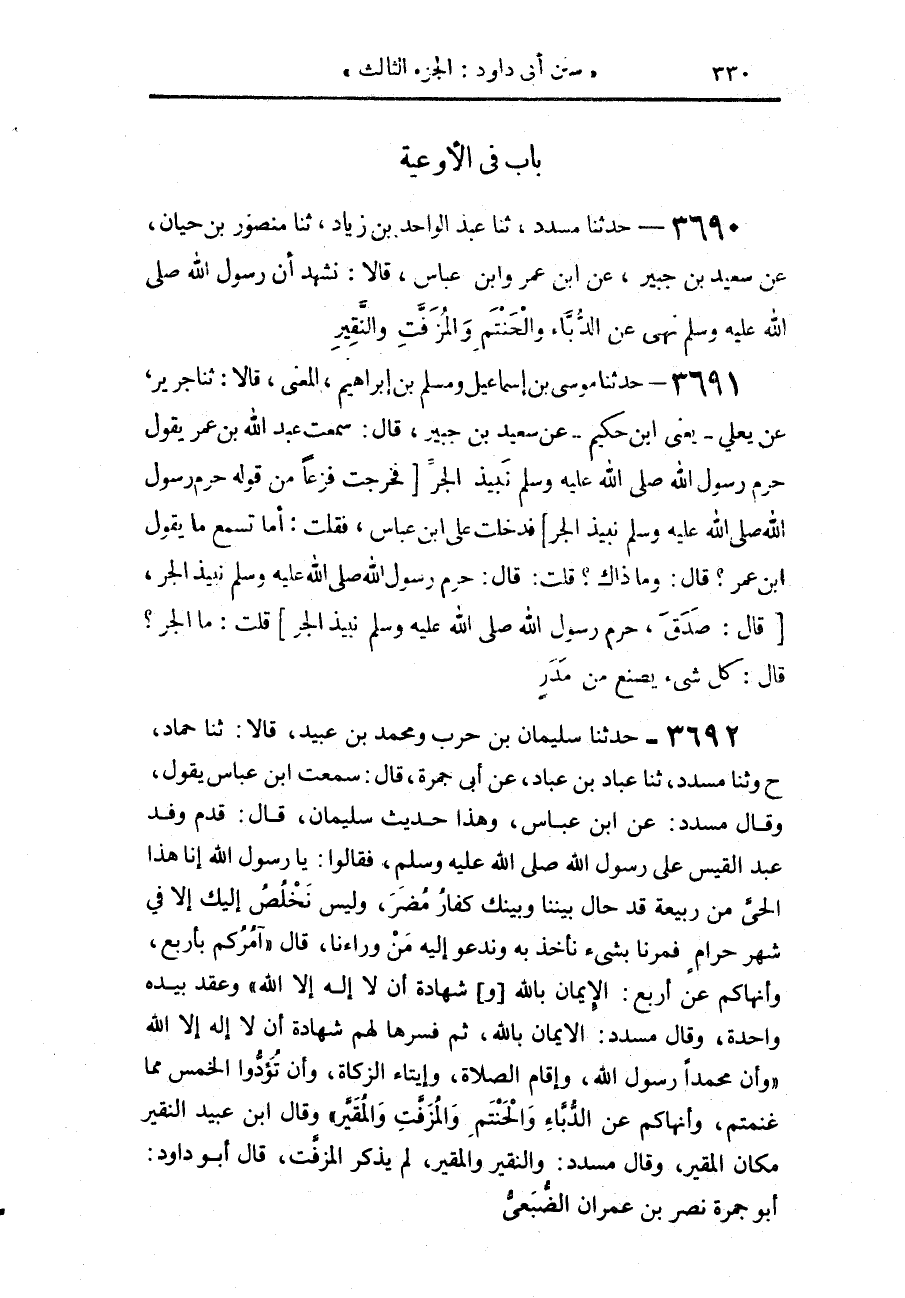 ٣٣٠ « سنن أبى داود : الجزء الثالث »
باب فى الأوعية
٣٦٩٠ — حدثنا مسدد ، ثنا عبد الواحد بن زياد ، ثنا منصور بن حيان ،
عن سعيد بن جبير ، عن ابن عمر وابن عباس ، قالا : نشهد أن رسول الله صلى
الله عليه وسلم نهى عن الدُّبَّاء والْحَنْتَم وَالمُزَفَّتِ والنَّقِيرِ
٣٦٩١ — حدثنا موسى بن إسماعيل ومسلم بن إبراهيم ، المعنى ، قالا : ثنا جرير ،
عن يعلي ــ يعنى ابن حكيم ــ عن سعيد بن جبير ، قال : سمعت عبد الله بن عمر يقول
حرم رسول الله صلى الله عليه وسلم نَبيذ الجرِّ [ فخرجت فزعاً من قوله حرم رسول
الله صلى الله عليه وسلم نبيذ الجر ] فدخلت على ابن عباس ، فقلت : أما تسمع ما يقول
ابن عمر ؟ قال : وما ذاك ؟ قلت : قال : حرم رسول الله صلى الله عليه وسلم نبيذ الجر ،
[ قال : صَدَقَ ، حرم رسول الله صلى الله عليه وسلم نبيذ الجر ] قلت : ما الجر ؟
قال : كل شىء يصنع من مَدَرٍ
٣٦٩٢ ـ حدثنا سليمان بن حرب ومحمد بن عبيد، قالا : ثنا حماد،
ح وثنا مسدد، ثنا عباد بن عباد، عن أبى جمرة، قال : سمعت ابن عباس يقول،
وقال مسدد : عن ابن عباس، وهذا حديث سليمان، قال : قدم وفد
عبد القيس على رسول الله صلى الله عليه وسلم، فقالوا : يا رسول الله إنا هذا
الحىَّ من ربيعة قد حال بيننا وبينك كفارُ مُضَرَ، وليس نَخْلُصُ إليك إلا في
شهر حرامٍ فمرنا بشىء نأخذ به وندعو إليه مَنْ وراءنا، قال «آمُرُكم بأربع،
وأنهاكم عن أربع : الإيمان بالله [و] شهادة أن لا إله إلا الله» وعقد بيده
واحدة، وقال مسدد : الايمان بالله، ثم فسرها لهم شهادة أن لا إله إلا الله
«وأن محمداً رسول الله، وإقام الصلاة، وإيتاء الزكاة، وأن تُؤَدُّوا الخمس مما
غنمتم، وأنهاكم عن الدُّبَّاءِ وَالْحَنْتَمِ وَالمُزَفَّتِ وَالمُقَيَّرِ» وقال ابن عبيد النقير
مكان المقير، وقال مسدد : والنقير والمقير، لم يذكر المزفَّت، قال أبو داود :
أبو جمرة نصر بن عمران الضُّبَعىُّ